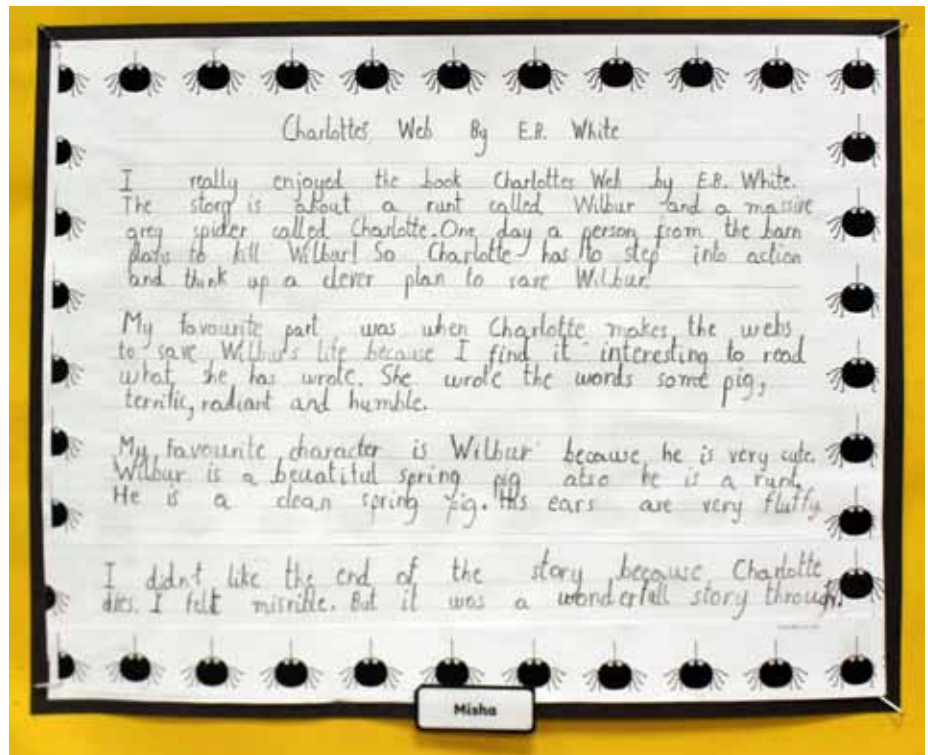 Charlotte's Web By E.B. White
I really enjoyed the book Charlottes Web by E.B. White.
The story is about a runt called Wilbur and a massive
grey spider called Charlotte. One day a person from the barn
plans to kill Wilbur! So Charlotte has to step into action
and think up a clever plan to save Wilbur.
My favourite part was when Charlotte makes the webs
to save Wilbur's life because I find it interesting to read
what she has wrote. She wrote the words some pig,
terrific, radiant and humble.
My favourite character is Wilbur because he is very cute.
Wilbur is a beuatiful spring pig also he is a runt.
He is a clean spring pig. His ears are very fluffy
I didnt like the end of the story because Charlotte
dies. I felt misrible. But it was a wonderfull story through.
Misha